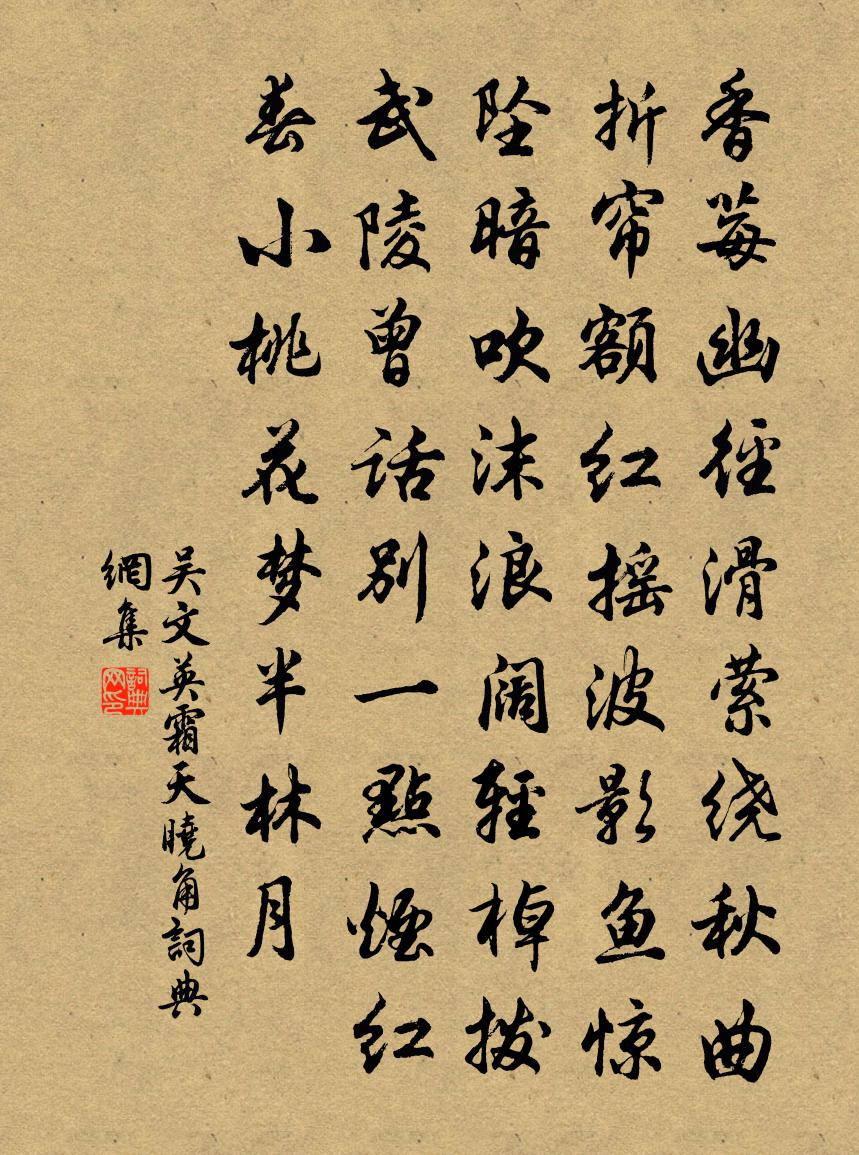 香莓幽徑滑萦绕秋曲
折帘额红摇波影鱼惊
坠暗吹沫浪阔輕棹拨
武陵曾话别一點煙红
春小桃花梦半林月
吴文英霜天曉角詞典
網集
詞典
网印